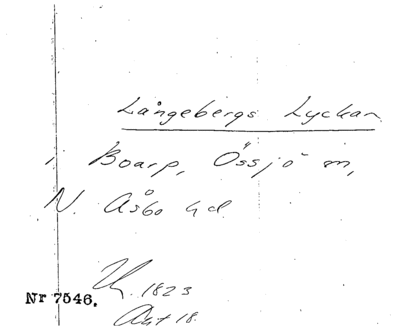 Långebergs Lyckan
i Boarp, Össjö sn,
N. Åsbo hd.
1823
Nr 7546.
Akt 18.